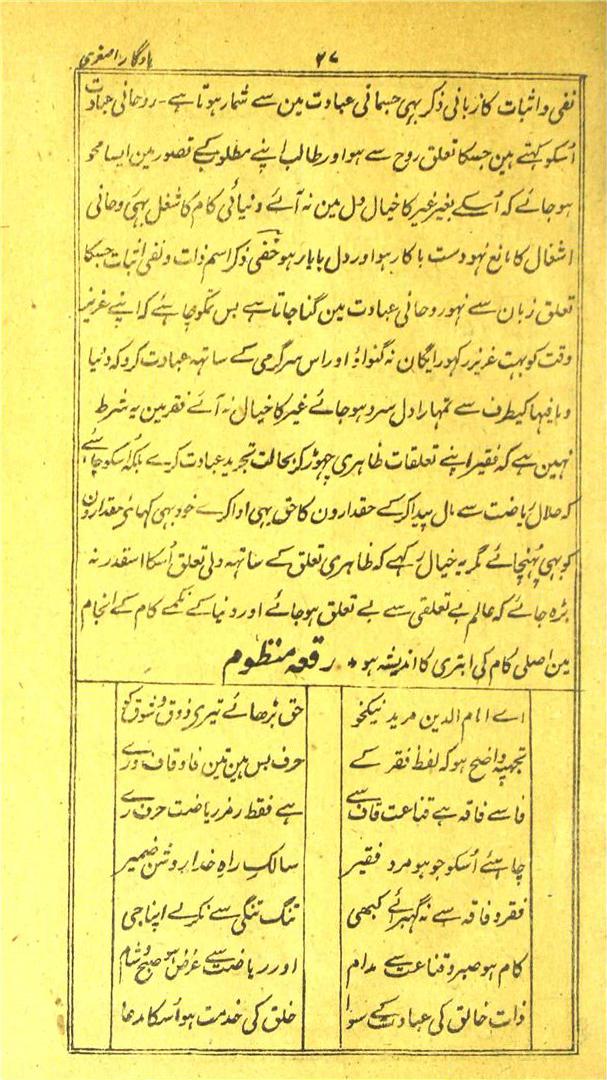 ۲۷ یادگار اصغری
نفی و اثبات کا زبانی ذکر بھی جسمانی عبادت مین سے شمار ہوتا ہے - روحانی عبادت
اُسکو کہتے ہین جسکا تعلق روح سے ہو اور طالب اپنے مطلوب کے تصور مین ایسا محو
ہو جائے کہ اُسکے بغیر غیر کا خیال دل مین نہ آئے دنیائی کام کا شغل بھی روحانی
اشغال کا مانع نہو دست با کار ہو اور دل با یار ہو خفی ذکر اسم ذات و نفی اثبات جسکا
تعلق زبان سے نہو روحانی عبادت مین گنا جاتا ہے بس تمکو چاہئے کہ اپنے عزیز
وقت کو بہت عزیز رکھو رایگان نہ گنواؤ اور اس سرگرمی کے ساتھ عبادت کرو کہ دنیا
و ما فیہا کیطرف سے تمہارا دل سرد ہو جائے غیر کا خیال نہ آئے فقر مین یہ شرط
نہین ہے کہ فقیر اپنے تعلقات ظاہری چھوڑ کر بحالت تجرید عبادت کرے بلکہ اُسکو چاہئے
کہ حلال ریاضت سے مال پیدا کر کے حقدارون کا حق بھی ادا کرے خود بھی کھائے حقدارون
کو بھی پہنچائے مگر یہ خیال رہے کہ ظاہری تعلق کے ساتھ دلی تعلق اُسکا اسقدر نہ
بڑہ جائے کہ عالم بے تعلقی سے بے تعلق ہو جائے اور دنیا کے نکمے کام کے انجام
مین اصلی کام کی ابتری کا اندیشہ ہو ٭ رقعہ منظوم
اے امام الدین مرید نیکخو حق بڑھائے تیری ذوق و شوق کو
تجھپہ واضح ہو کہ لفظ فقر کے حرف بس ہین تین فا و قاف و رے
فا سے فاقہ ہے قناعت قاف سے ہے فقط رمز ریاضت حرف رے
چاہئے اُسکو جو ہو مرد فقیر سالکِ راہِ خدا روشن ضمیر
فقر و فاقہ سے نہ گھبرائے کبھی تنگ تنگی سے نکرے اپنا جی
کام ہو صبر و قناعت سے مدام اور ریاضت سے غرض ہو صبح و شام
ذات خالق کی عبادت کے سوا خلق کی خدمت ہو اُسکا مدعا